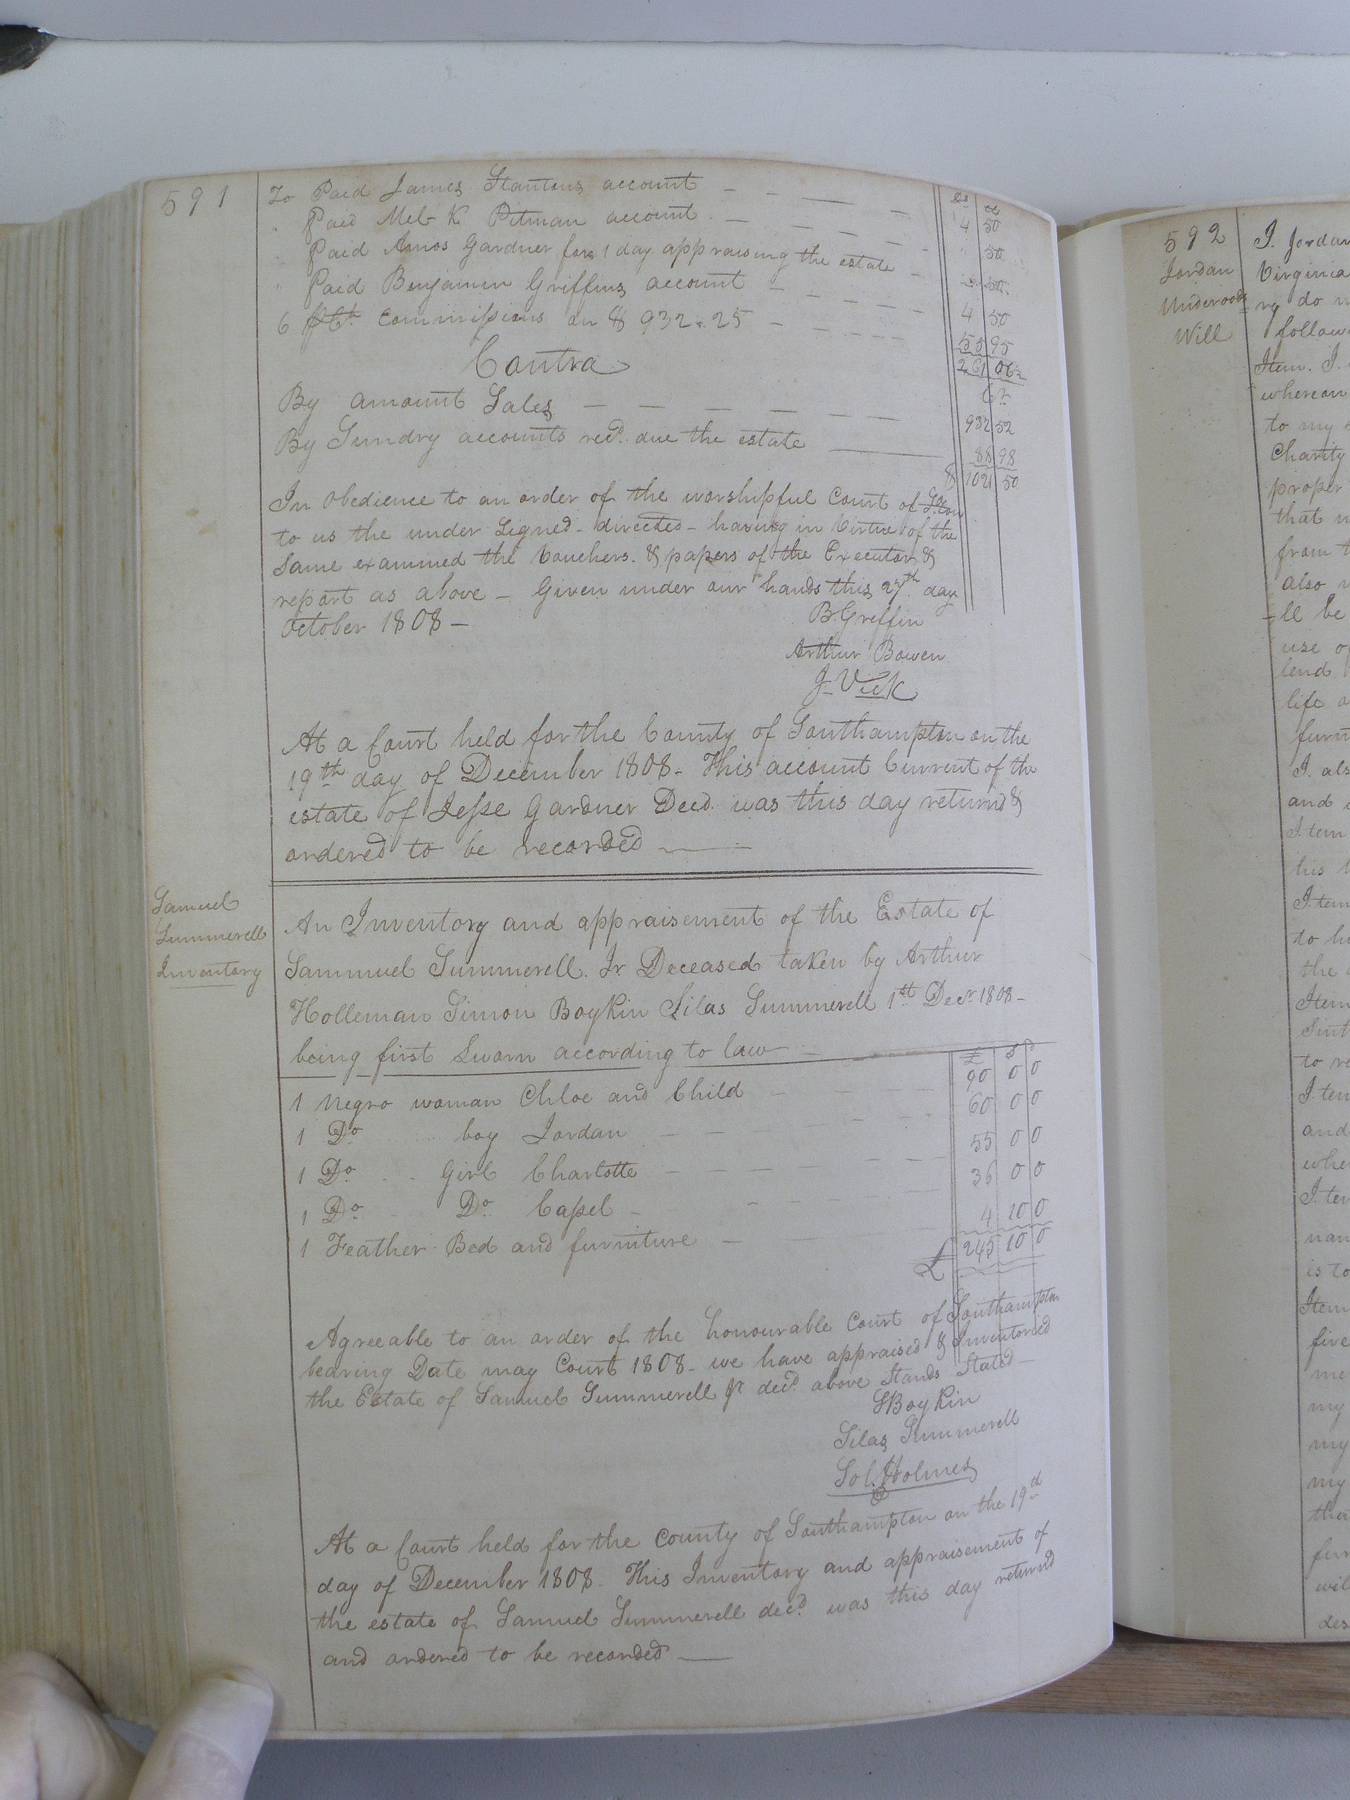 591
To Paid James Stantons account — — — — 4 50
" Paid Mel- K Pitman account — — — — 50
" Paid Amos Gardner for 1 day appraising the estate — 50
" Paid Benjamin Griffins account — — — — 4 50
6 commissions on $ 932.25 — — — — 55 95
261 06
Contra Cr
By amount Sales — — — — — 932 52
By Sundry accounts recd. due the estate ——— 88 98
$ 1021 50
In obedience to an order of the worshipful Court of
to us the under signed - directed - having in virtue of the
Same examined the Vouchers. & papers of the Executor &
report as above - Given under our hands this 27th day
October 1808 -
B. Griffin
Arthur Bowen
J- Vick
At a Court held for the County of Southampton on the
19th day of December 1808 - This account Current of the
estate of Jesse Gardner Decd. was this day returnd &
ordered to be recorded ———
Samuel
Summerell
Inventory
An Inventory and appraisement of the Estate of
Sammuel Summerell. Jr Deceased taken by Arthur
Holleman Simon Boykin Silas Summerell 1st Decr 1808 -
being first Sworn according to law —
£ S D
1 Negro woman Chloe and Child — — — 90 0 0
1 Do boy Jordan — — — — 60 0 0
1 Do . . Girl Charlotte — — — — 55 0 0
1 Do Do Casel - — — — 36 0 0
1 Feather Bed and furniture — — — 4 10 0
£ 245 10 0
Agreeable to an order of the honourable Court of Southampton
bearing Date may Court 1808 - we have appraised & Inventoried
the Estate of Samuel Summerell Jr decd. above Stands Stated -
SBoykin
Silas Summerell
Sol. Holmes
At a Court held for the County of Southampton on the 19d
day of December 1808. This Inventory and appraisement of
the estate of Samuel Summerell decd. was this day returnd
and ordered to be recorded ———
592
Jordan
Underwoods
Will
I. Jordan
Virginia
ry do
follow
Item. I.
whereon
to my
Charity
proper
that
from
also
-ll be
use
lend
life
furn
I. als
and
Item
his
Item
to
the
Item
to
I. tem
and
whe
I. tem
is to
Item
five
me
my
my
my
the
fur
wil
des